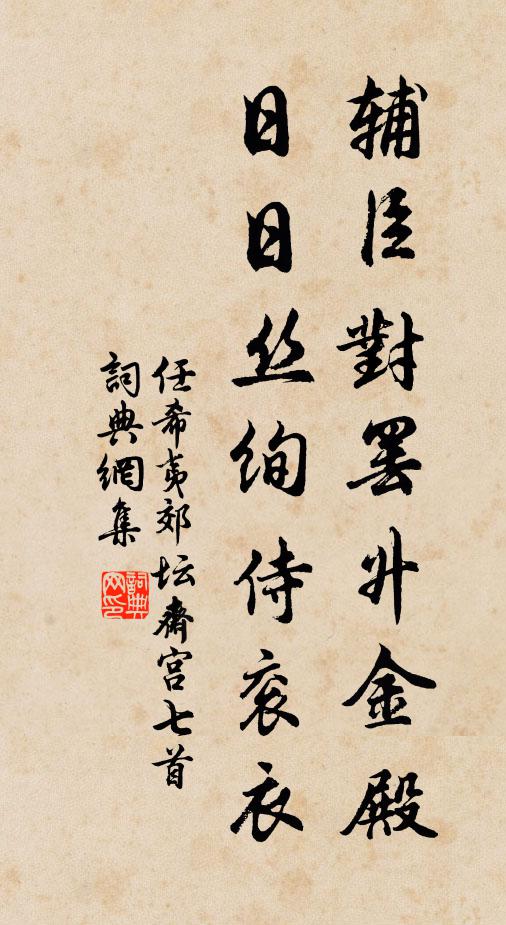 辅臣對罢升金殿
日日丝絢侍衮衣
任希夷郊坛斋宫七首
詞典網集
詞典网印